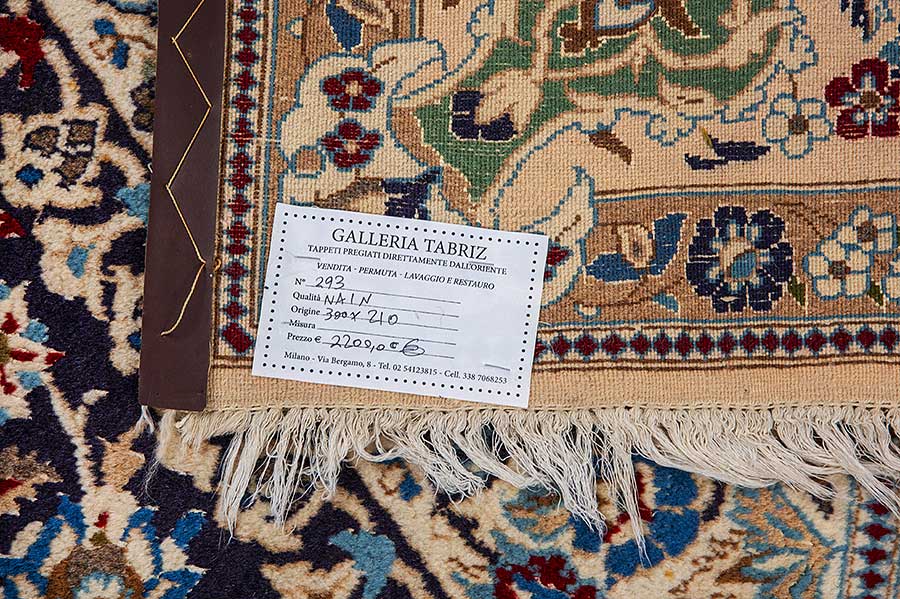 GALLERIA TABRIZ
TAPPETI PREGIATI DIRETTAMENTE DALL'ORIENTE
VENDITA - PERMUTA - LAVAGGIO E RESTAURO
N° 293
Qualità NAIN
Origine 300x210
Misura
Prezzo € 2200,00 €
Milano - Via Bergamo, 8 - Tel. 02 54123815 - Cell. 338 7068253